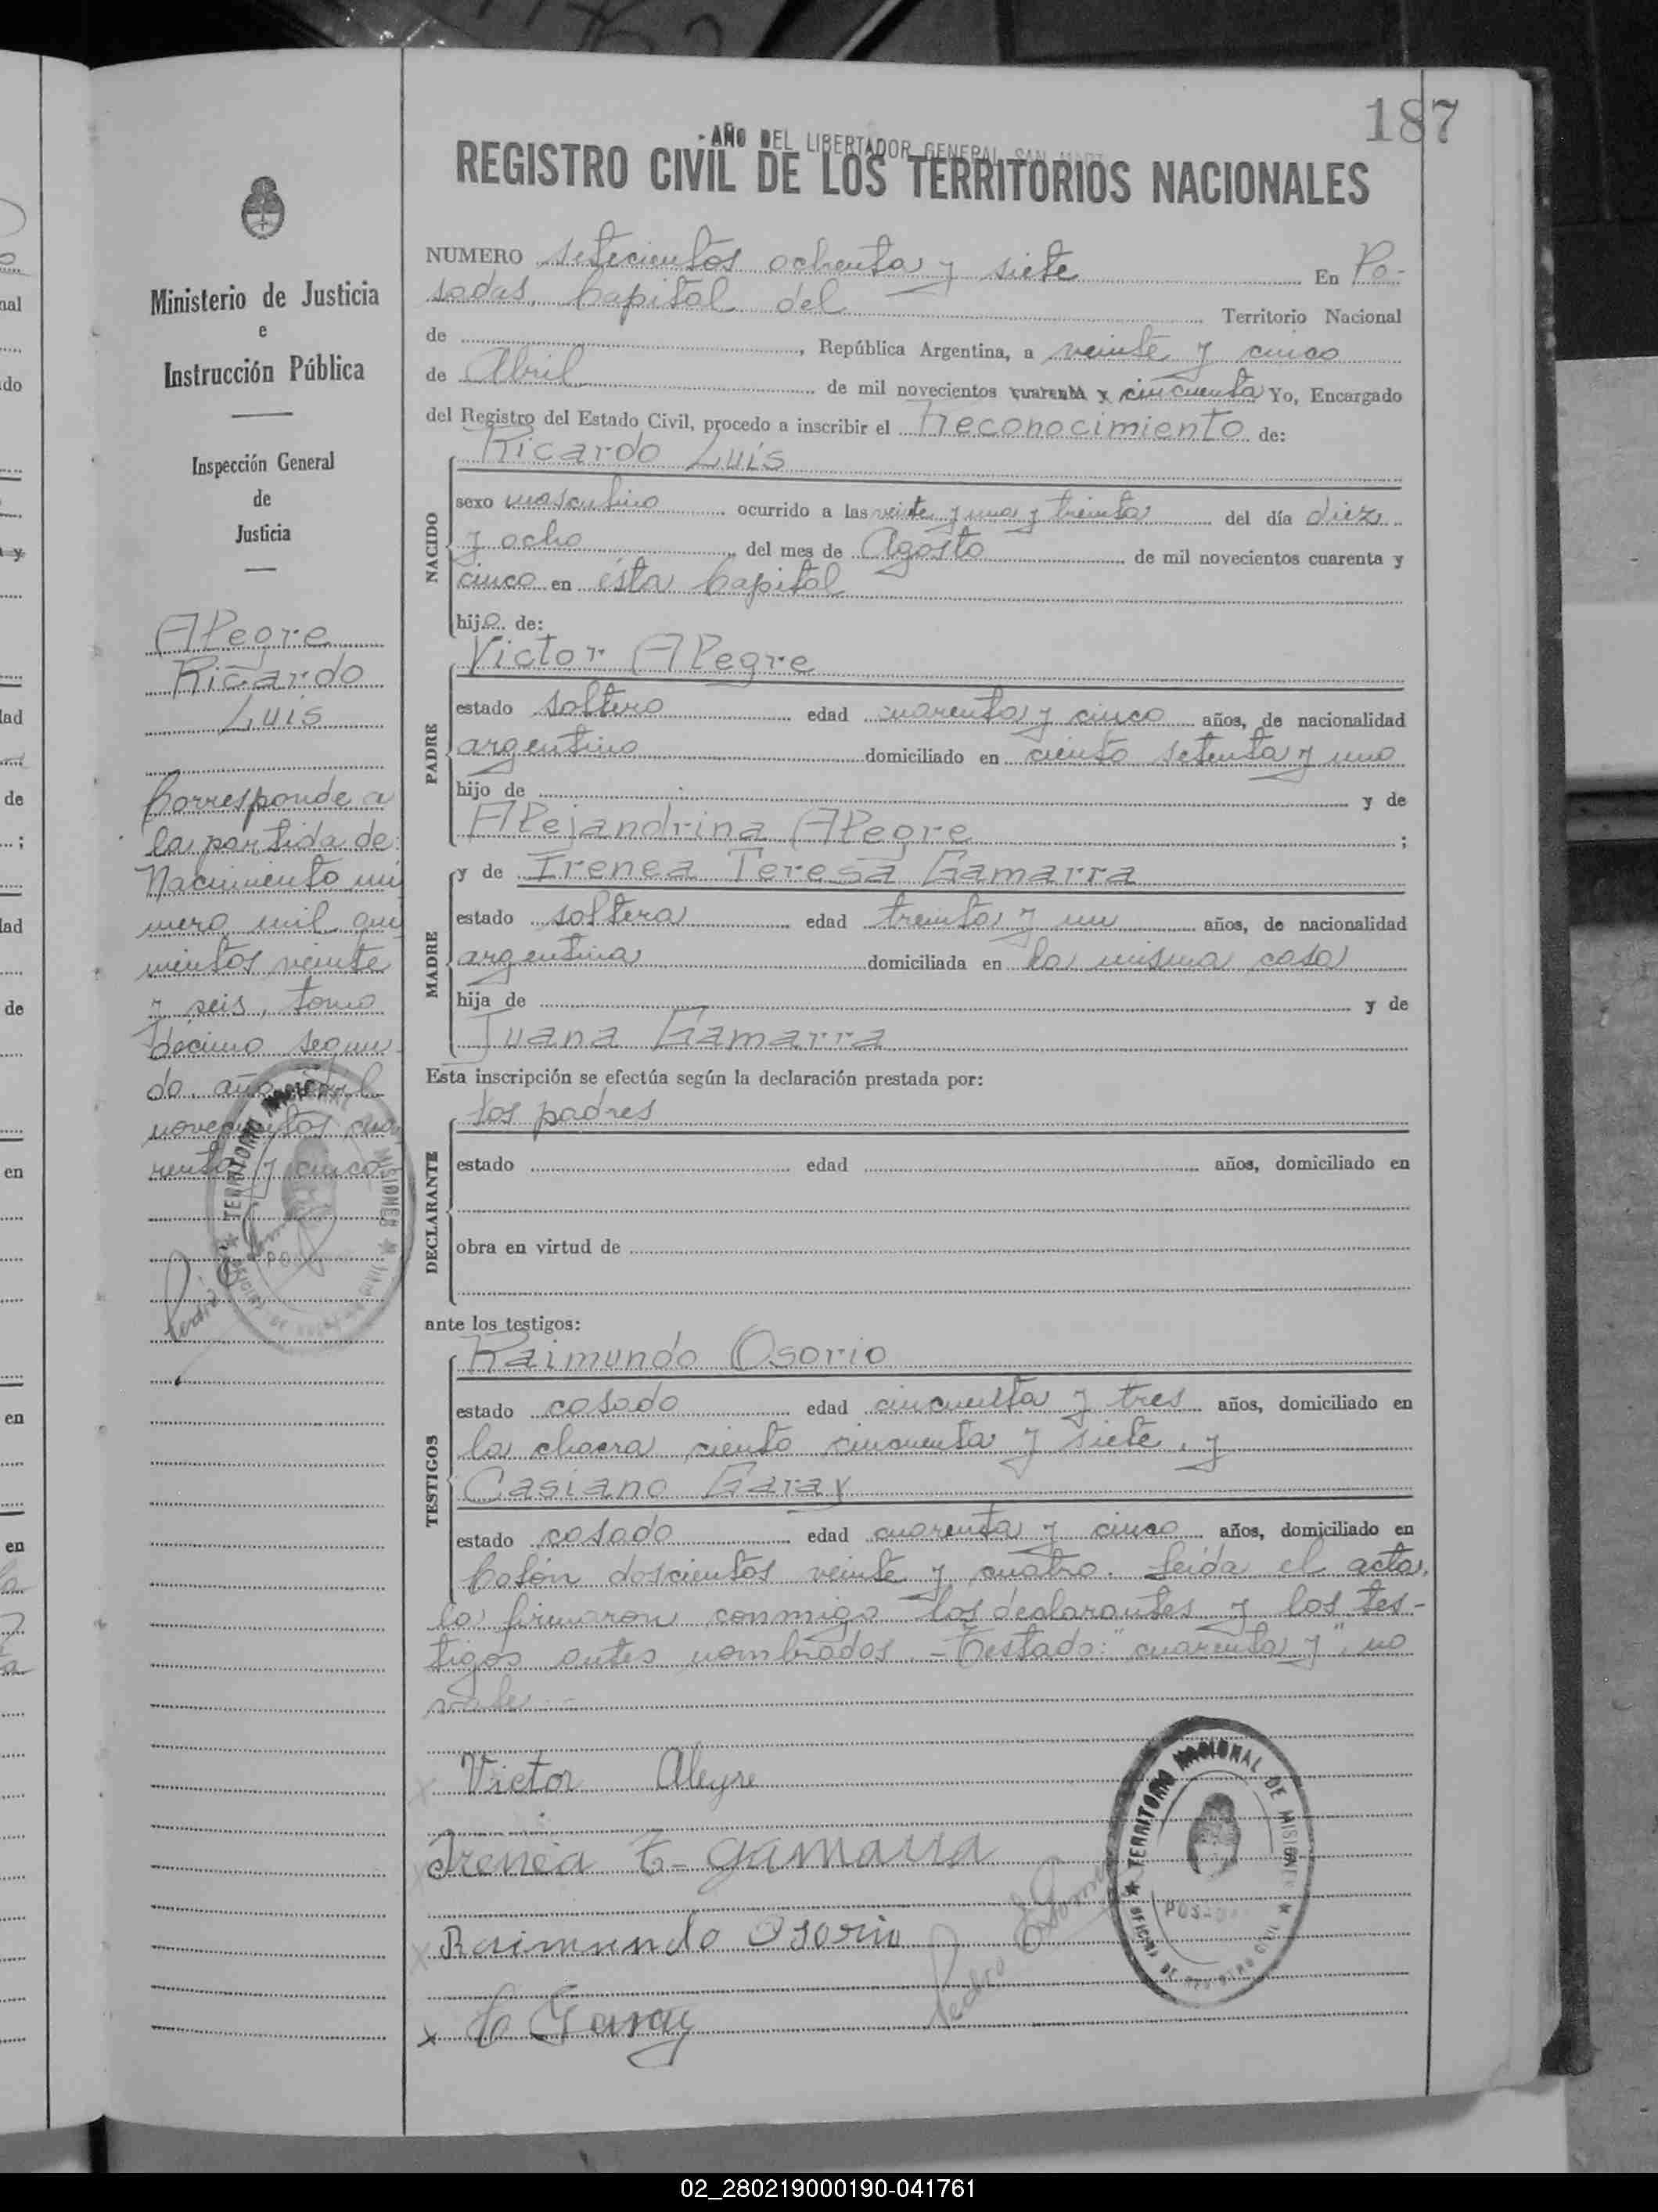 187
- AÑO DEL LIBERTADOR GENERAL SAN
REGISTRO CIVIL DE LOS TERRITORIOS NACIONALES
Ministerio de Justicia
e
Instrucción Pública
Inspección General
de
Justicia
Alegre
Ricardo
Luis
Corresponde a
la partida de
Nacimiento nú
mero mil qui
nientos veinte
y seis, tomo
décimo segun
do, año mil
novecientos cua
renta y cinco
TERRITORIO NACIONAL MISIONES
NUMERO setecientos ochenta y siete En Po-
sadas, Capital del Territorio Nacional
de , República Argentina, a veinte y cinco
de Abril de mil novecientos cuarenta y cincuenta Yo, Encargado
del Registro del Estado Civil, procedo a inscribir el Reconocimiento de:
Ricardo Luis
NACIDO
sexo masculino ocurrido a las veinte y una y treinta del día diez
y ocho del mes de Agosto de mil novecientos cuarenta y
cinco en ésta Capital
hijo de:
Victor Alegre
PADRE
estado soltero edad cuarenta y cinco años, de nacionalidad
argentino domiciliado en ciento setenta y uno
hijo de y de
Alejandrina Alegre ;
y de Irenea Teresa Gamarra
MADRE
estado soltera edad treinta y un años, de nacionalidad
argentina domiciliada en la misma casa
hija de y de
Juana Gamarra
Esta inscripción se efectúa según la declaración prestada por:
los padres
DECLARANTE
estado edad años, domiciliado en
obra en virtud de
ante los testigos:
Raimundo Osorio
TESTIGOS
estado casado edad cincuenta y tres años, domiciliado en
la chacra ciento cincuenta y siete, y
Casiano Garay
estado casado edad cuarenta y cinco años, domiciliado en
Colón doscientos veinte y cuatro. Leída el acta,
la firmaron conmigo los declarantes y los tes-
tigos antes nombrados. - Testado: "cuarenta y", no
vale.
Victor Alegre
Irenea T- gamarra
Raimundo Osorio
C Garay
TERRITORIO NACIONAL DE MISIONES
OFICINA DE REGISTRO CIVIL
02_280219000190-041761